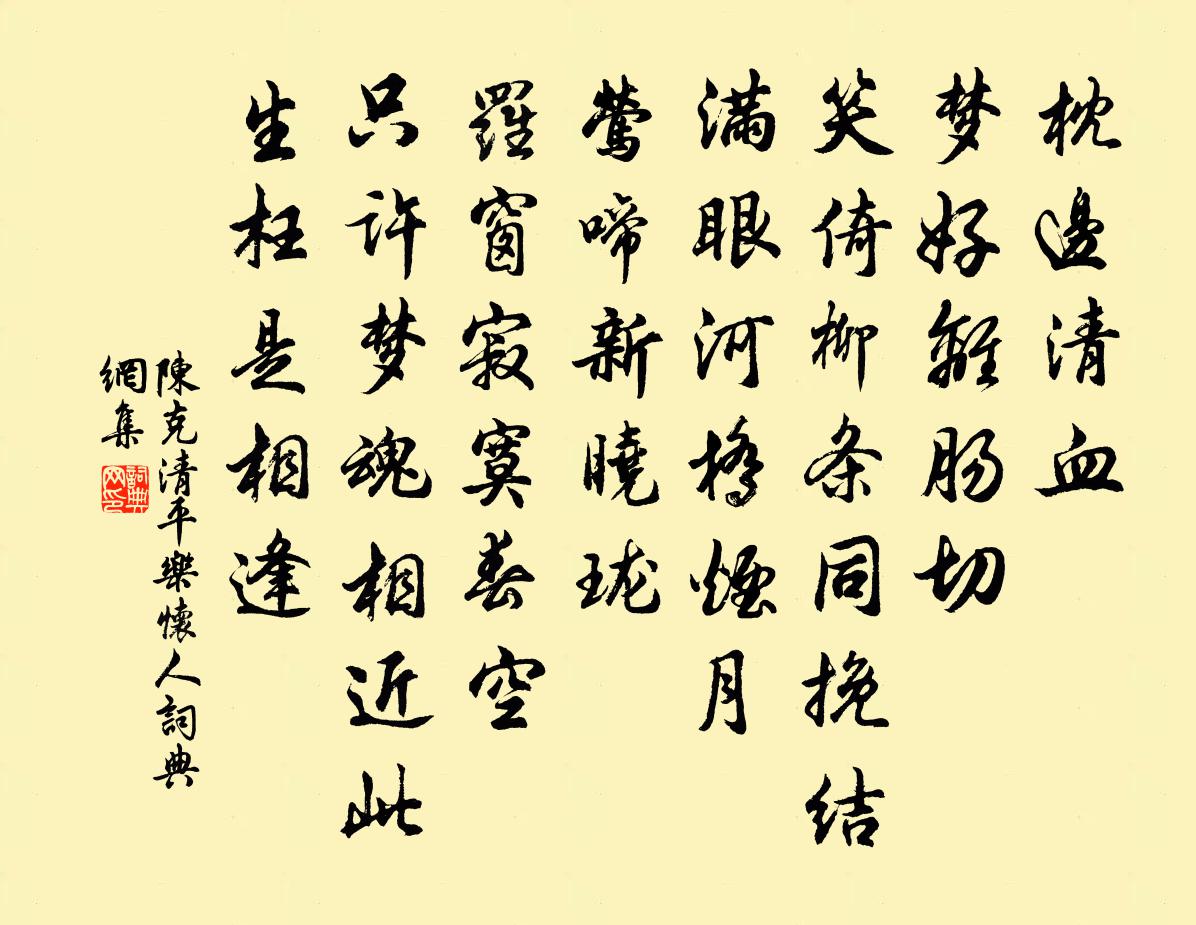 枕邊清血
梦好離肠切
笑倚柳条同挽结
滿眼河橋煙月
鶯啼新曉珑
羅窗寂寞春空
只许梦魂相近此
生枉是相逢
陳克清平樂懷人詞典
網集
詞典
网印